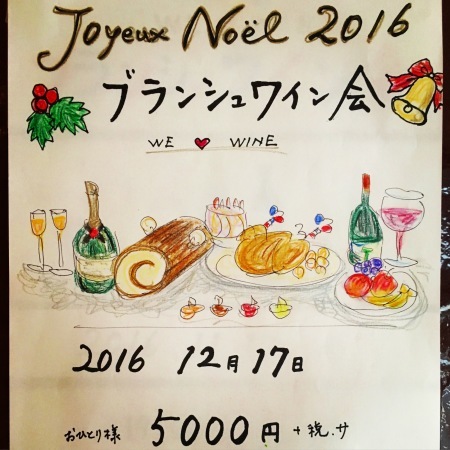 Joyeux Noël 2016
ブランシュワイン会
WE ♥ WINE
2016 12月17日
おひとり様 5000円 +税.サ